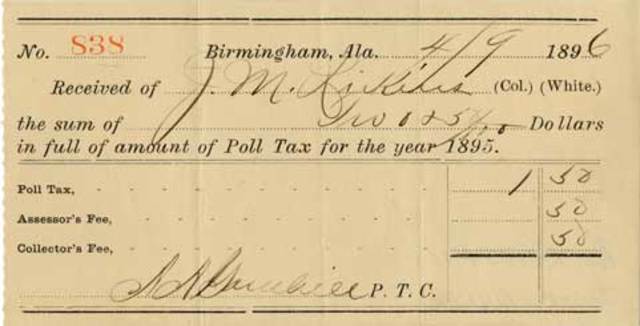 No. 838 Birmingham, Ala. 4/9 1896
Received of J. M. (Col.) (White.)
the sum of Two & 50/100 Dollars
in full of amount of Poll Tax for the year 1895.
Poll Tax, - - - - - - - - - 1 50
Assessor's Fee, - - - - - - - - 50
Collector's Fee, - - - - - - - - 50
P. T. C.